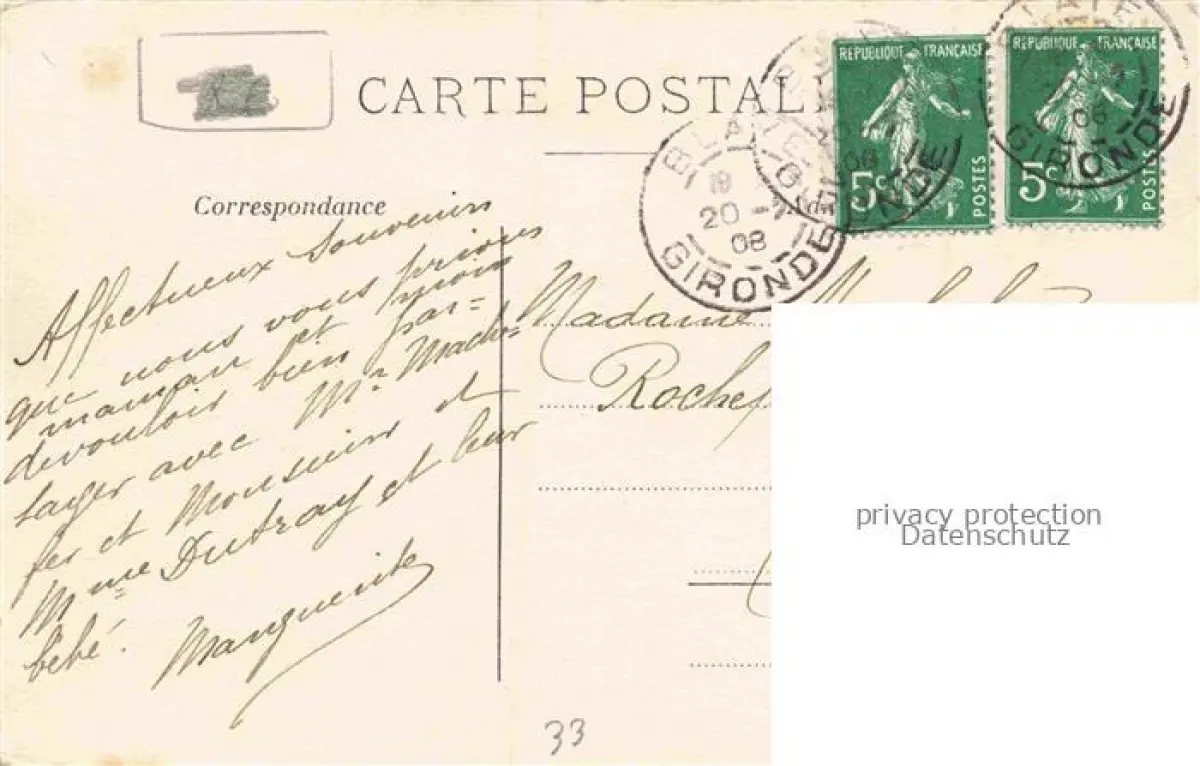 CARTE POSTAL
RÉPUBLIQUE FRANÇAISE
5c POSTES
RÉPUBLIQUE FRANÇAISE
5c POSTES
BLAYE
19
20 - 7
08
GIRONDE
GIRONDE
08
GIRONDE
06
Correspondance
Affectueux Souvenirs
que nous vous prions
maman et moi
de vouloir bien par=
tager avec Mr
fer et Monsieur et
Mme Dutray et leur
bébé.
Marguerite
Madame
33
privacy protection
Datenschutz